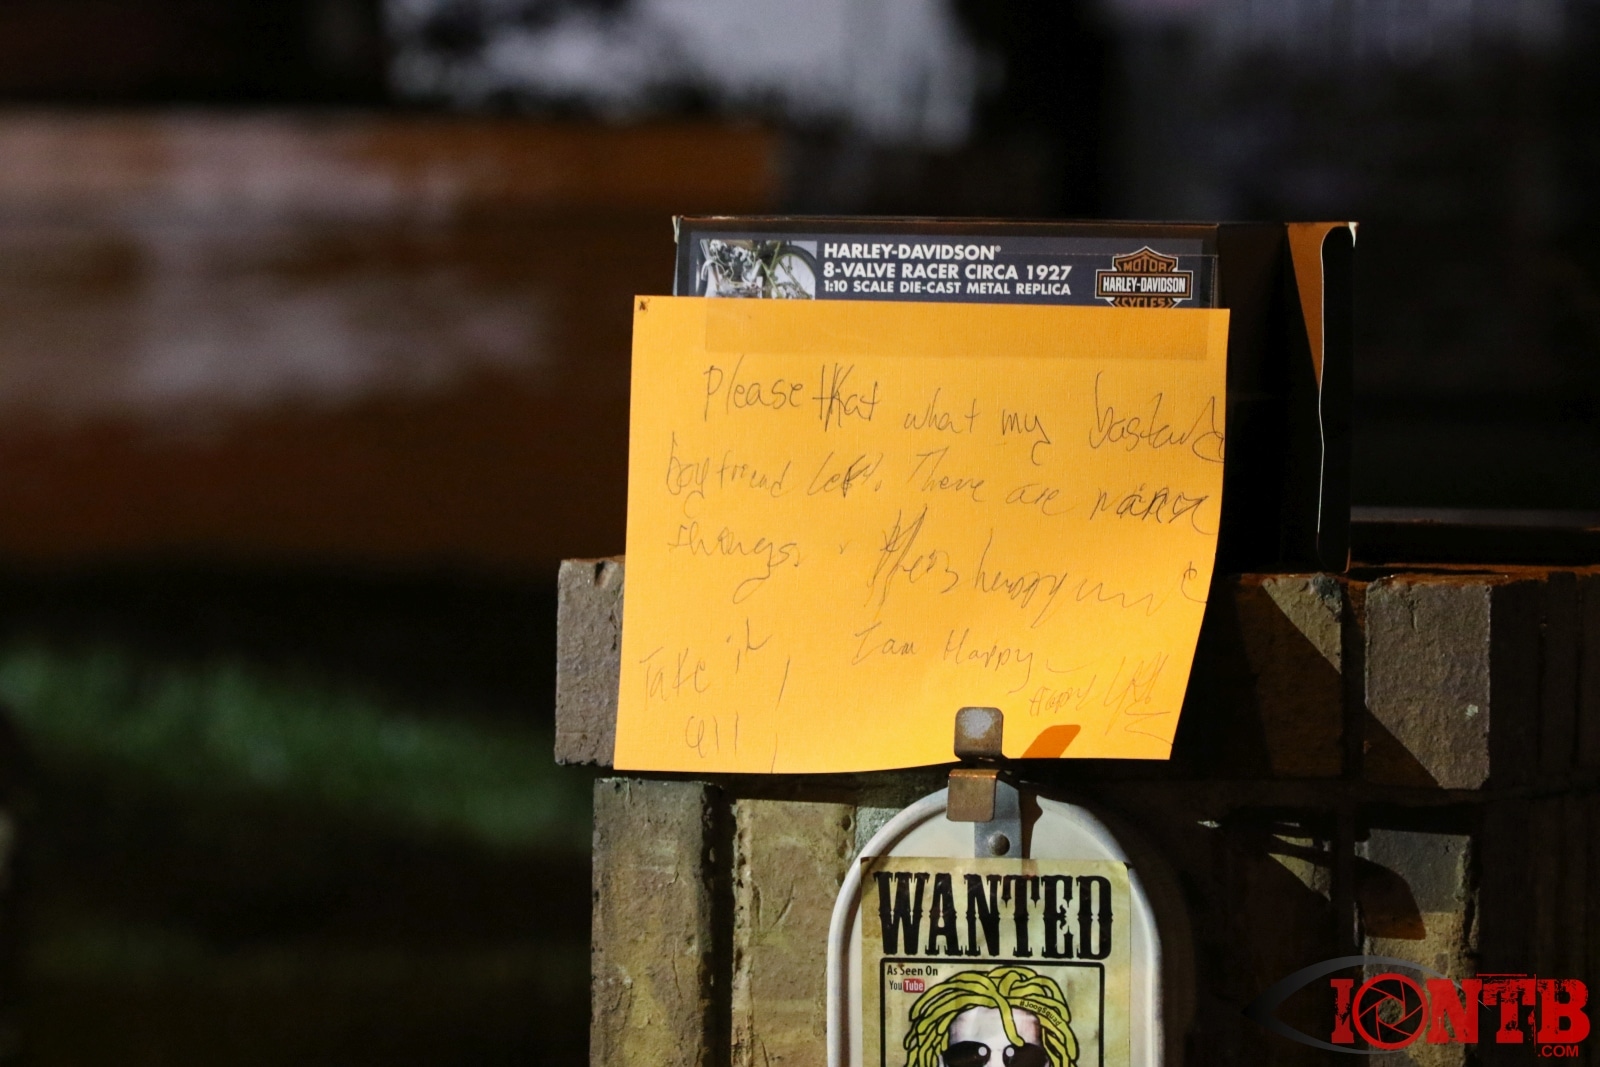 HARLEY-DAVIDSON®
8-VALVE RACER CIRCA 1927
1:10 SCALE DIE-CAST METAL REPLICA
MOTOR
HARLEY-DAVIDSON
CYCLES
Please that what my bastard
boyfriend left. There are many
things.
I am Happy
Take it
all
Happy
WANTED
As Seen On
YouTube
IONTB
.COM